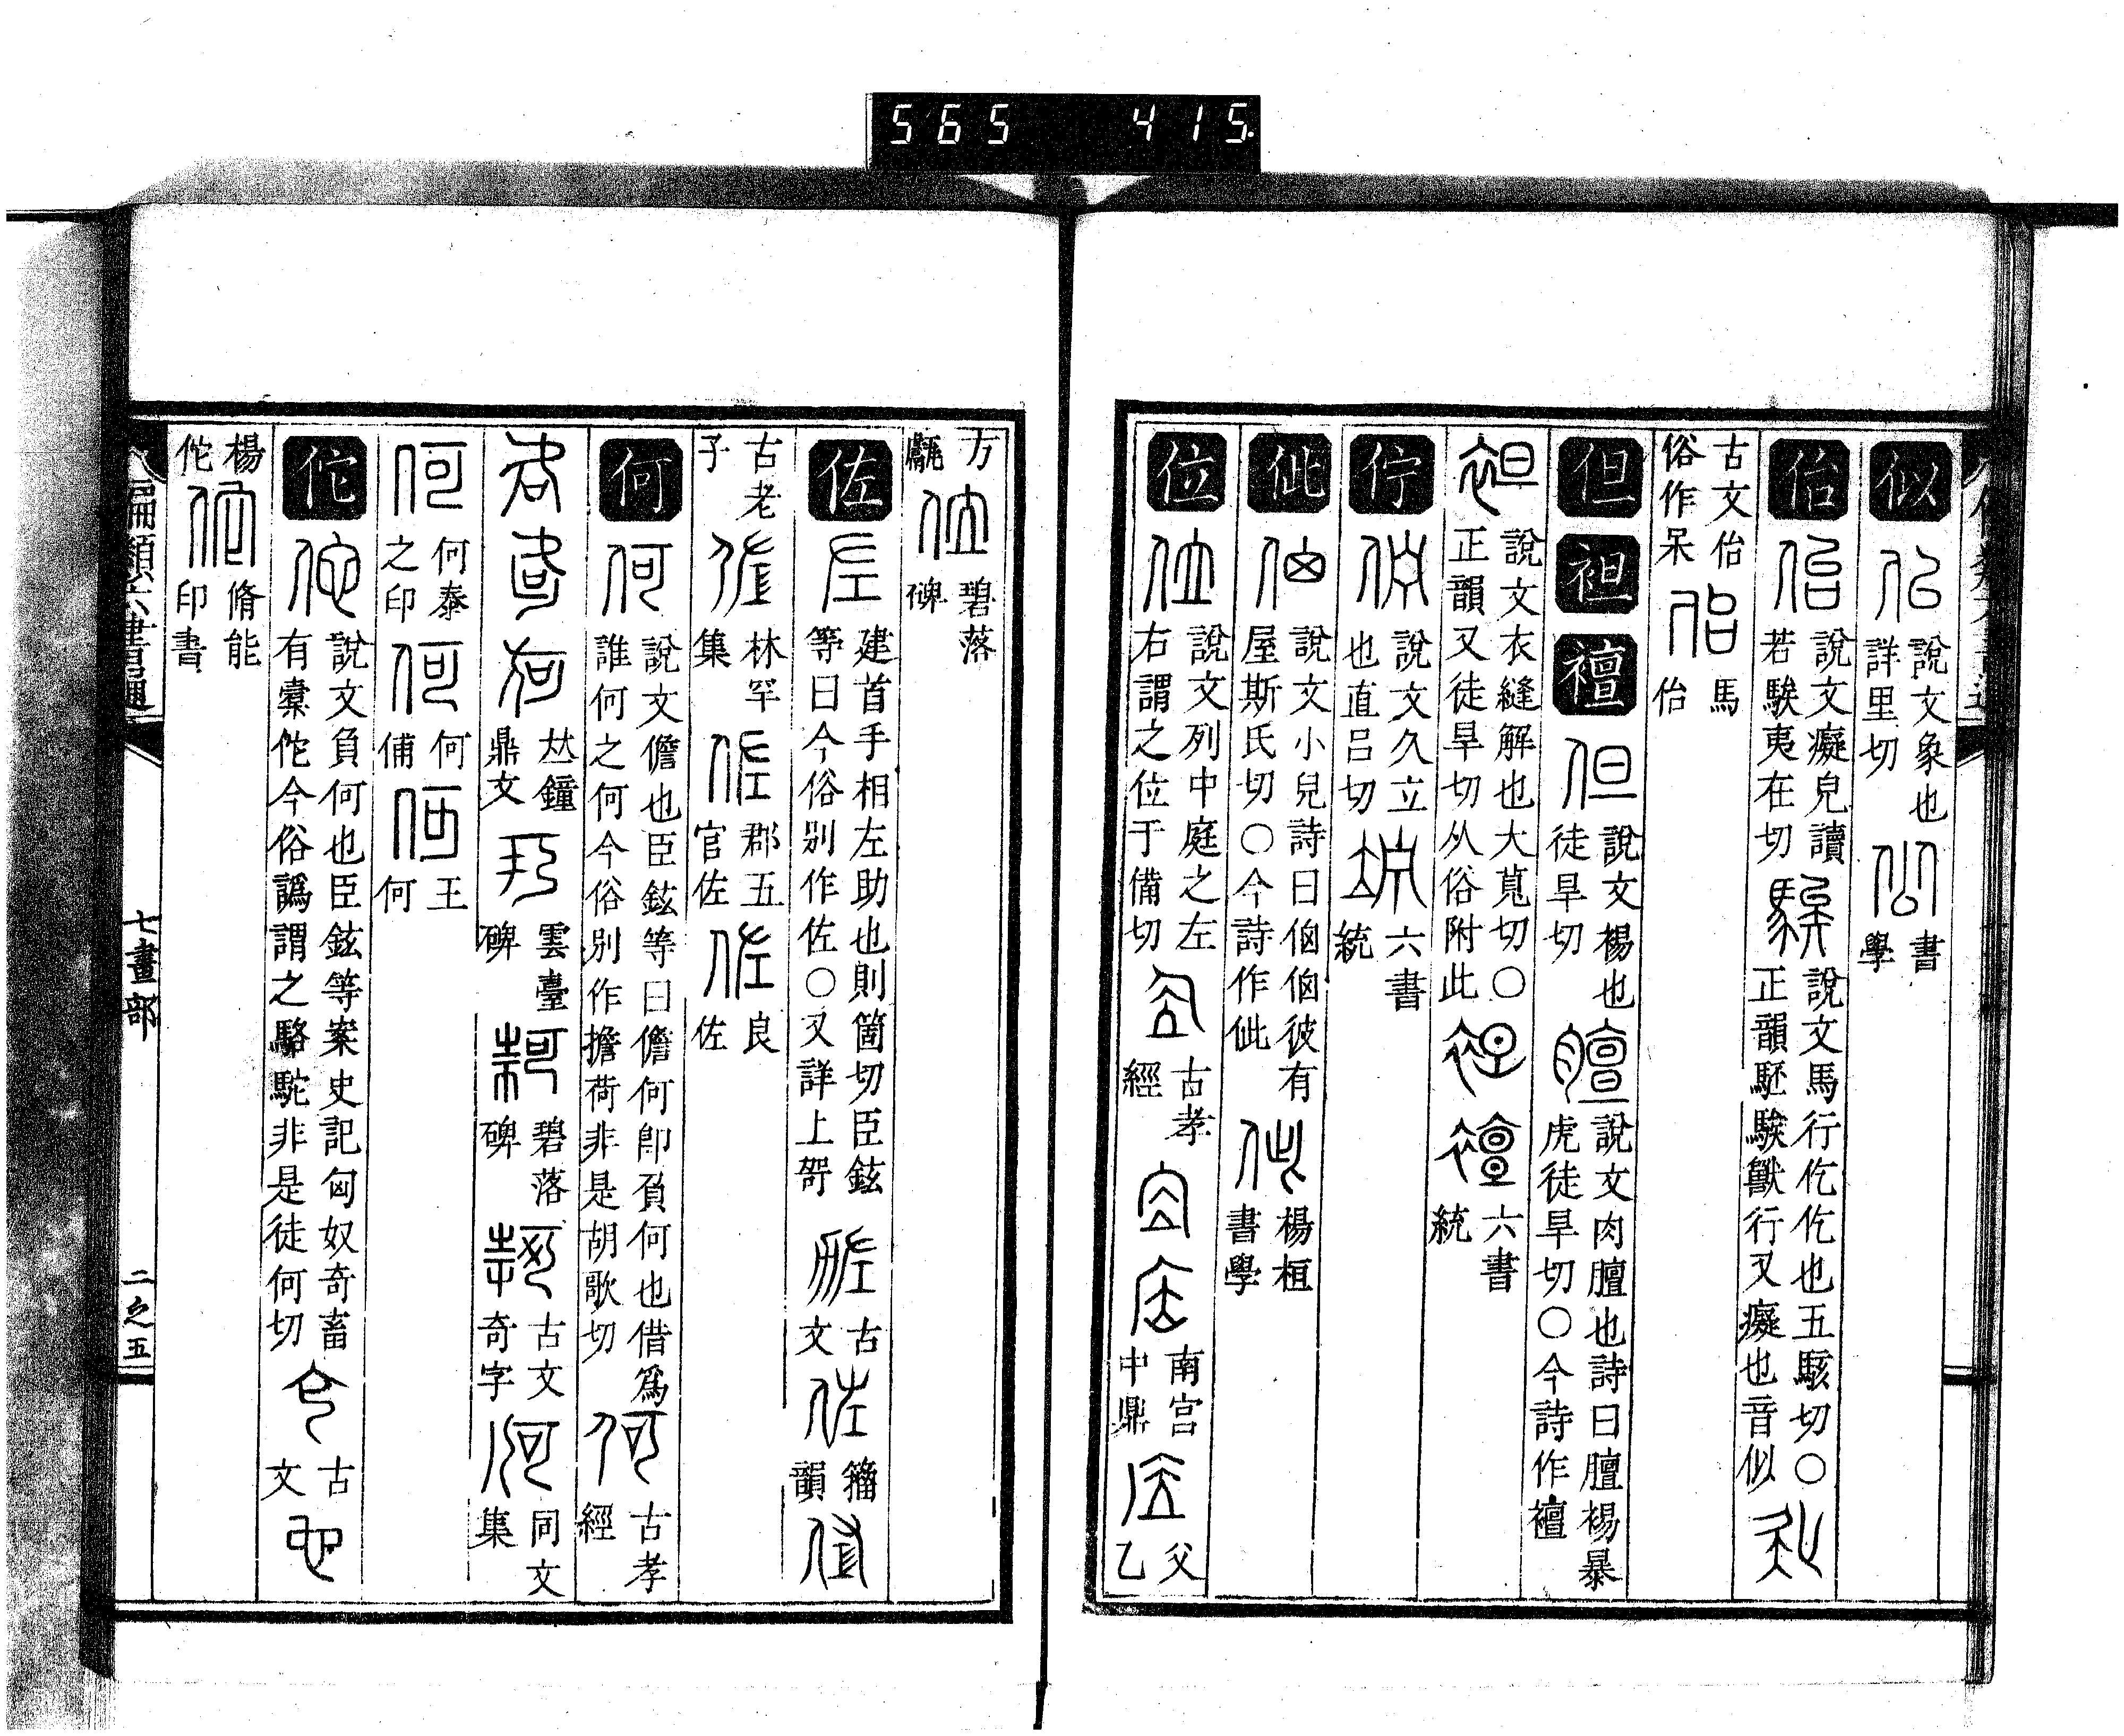 565 415
似 說文象也詳里切 書學
佁 說文癡皃讀若騃夷在切 說文馬行仡仡也五駭切〇正韻駓騃獸行又癡也音似
古文佁俗作呆 馬佁
但袒襢 說文裼也徒旱切 說文肉膻也詩曰膻裼暴虎徒旱切〇今詩作襢
說文衣縫解也大莧切〇正韻又徒旱切从俗附此 六書統
佇 說文久立也直呂切 六書統
佌 說文小皃詩曰㑤㑤彼有屋斯氏切〇今詩作佌 楊桓書學
位 說文列中庭之左右謂之位于備切 古孝經 南宮中鼎 父乙
方甗 碧落碑
佐 建首手相左助也則箇切臣鉉等曰今俗別作佐〇又詳上哿 古文 籀韻
古老子 林罕集 郡五官佐 良佐
何 說文儋也臣鉉等曰儋何卽負何也借爲誰何之何今俗別作擔荷非是胡歌切 古孝經
夶鐘鼎文 雲臺碑 碧落碑 古文奇字 同文集
何泰之印 何俌 王何
佗 說文負何也臣鉉等案史記匈奴奇畜有橐佗今俗譌謂之駱駝非是徒何切 古文
楊佗 脩能印書
偏類六書通 七畫部 二之五